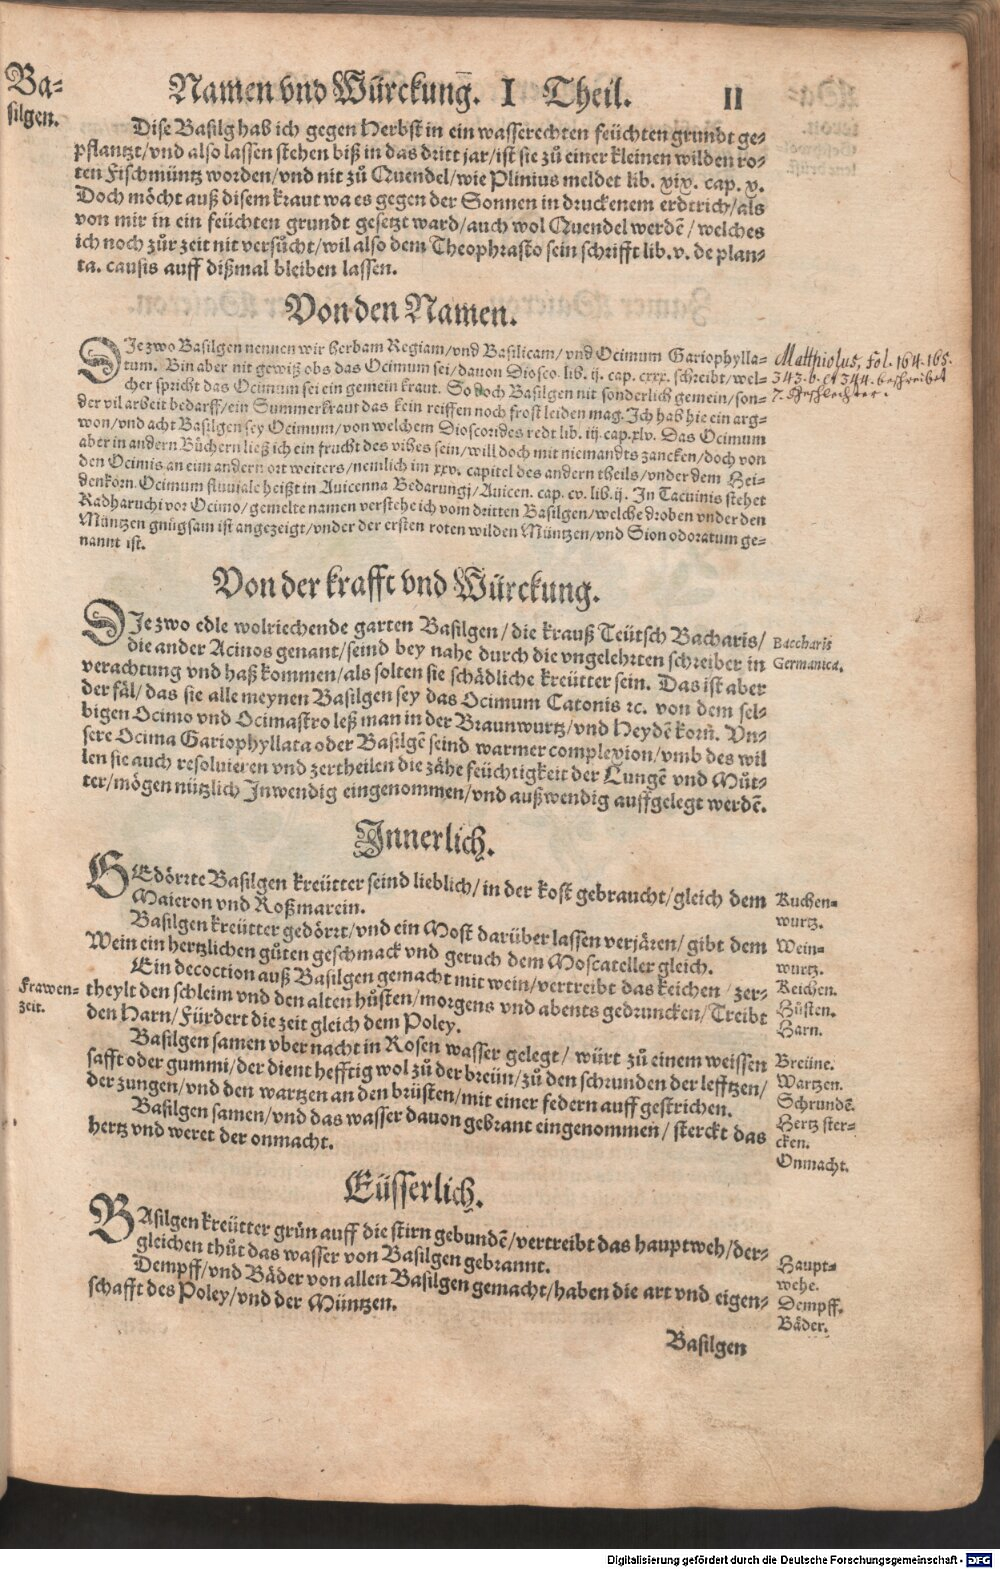 Ba-
silgen.
Namen vnd Würckung. I Theil. II
Dise Basilg hab ich gegen Herbst in ein wasserechten feüchten grundt ge-
pflantzt/vnd also lassen stehen biß in das dritt jar/ist sie zů einer kleinen wilden ro-
ten Fischmüntz worden/vnd nit zů Quendel/wie Plinius meldet lib. xix. cap. v.
Doch möcht auß disem kraut wa es gegen der Sonnen in druckenem erdtrich/als
von mir in ein feüchten grundt gesetzt ward/auch wol Quendel werdē/welches
ich noch zůr zeit nit versůcht/wil also dem Theophrasto sein schrifft lib. v. de plan-
ta. causis auff dißmal bleiben lassen.
Von den Namen.
DIe zwo Basilgen nennen wir herbam Regiam/vnd Basilicam/vnd Ocimum Gariophylla-
tum. Bin aber nit gewiß obs das Ocimum sei/dauon Diosco. lib. ij. cap. cxxx. schreibt/wel-
cher spricht das Ocimum sei ein gemein kraut. So doch Basilgen nit sonderlich gemein/son-
der vil arbeit bedarff/ein Summerkraut das kein reiffen noch frost leiden mag. Ich hab hie ein arg-
won/vnd acht Basilgen sey Ocimum/von welchem Dioscorides redt lib. iij. cap. xlv. Das Ocimum
aber in andern Bůchern ließ ich ein frucht des vihes sein/will doch mit niemandts zancken/doch von
den Ocimis an eim andern ort weiters/nemlich im xxv. capitel des andern theils/vnder dem Hei-
denkorn. Ocimum fluuiale heißt in Auicenna Bedarungi/Auicen. cap. cv. lib. ij. In Tacuinis stehet
Radharuchi vor Ocimo/gemelte namen verstehe ich vom dritten Basilgen/welche droben vnder den
Müntzen gnůgsam ist angezeigt/vnder der ersten roten wilden Müntzen/vnd Sion odoratum ge-
nannt ist.
Matthiolus, fol. 164. 165.
343. b. et 344. beschreibet
7. Geschlechter.
Von der krafft vnd Würckung.
DIe zwo edle wolriechende garten Basilgen/die krauß Teütsch Bacharis/
die ander Acinos genant/seind bey nahe durch die vngelehrten schreiber in
verachtung vnd haß kommen/als solten sie schädliche kreütter sein. Das ist aber
der fäl/das sie alle meynen Basilgen sey das Ocimum Catonis ꝛc. von dem sel-
bigen Ocimo vnd Ocimastro leß man in der Braunwurtz/vnd Heydē korn̄. Vn-
sere Ocima Gariophyllata oder Basilgē seind warmer complexion/vmb des wil
len sie auch resoluieren vnd zertheilen die zähe feüchtigkeit der Lungē vnd Můt-
ter/mögen nützlich Inwendig eingenommen/vnd außwendig auffgelegt werdē.
Baccharis
Germanica.
Innerlich.
GEdörrte Basilgen kreütter seind lieblich/in der kost gebraucht/gleich dem
Maieron vnd Roßmarein.
Basilgen kreütter gedörrt/vnd ein Most darüber lassen verjären/gibt dem
Wein ein hertzlichen gůten geschmack vnd geruch dem Moscateller gleich.
Ein decoction auß Basilgen gemacht mit wein/vertreibt das keichen/zer-
theylt den schleim vnd den alten hůsten/morgens vnd abents gedruncken/Treibt
den Harn/Fürdert die zeit gleich dem Poley.
Basilgen samen vber nacht in Rosen wasser gelegt/würt zů einem weissen
safft oder gummi/der dient hefftig wol zů der breün/zů den schrunden der lefftzen/
der zungen/vnd den wartzen an den brüsten/mit einer federn auff gestrichen.
Basilgen samen/vnd das wasser dauon gebrant eingenommen/sterckt das
hertz vnd weret der onmacht.
Frawen-
zeit.
Kuchen-
wurtz.
Wein-
wurtz.
Keichen.
Hůsten.
Harn.
Breüne.
Wartzen.
Schrundē.
Hertz ster-
cken.
Onmacht.
Eüsserlich.
BAsilgen kreütter grün auff die stirn gebundē/vertreibt das hauptweh/der-
gleichen thůt das wasser von Basilgen gebrannt.
Dempff/vnd Bäder von allen Basilgen gemacht/haben die art vnd eigen-
schafft des Poley/vnd der Müntzen.
Haupt-
wehe.
Dempff.
Bäder.
Basilgen
Digitalisierung gefördert durch die Deutsche Forschungsgemeinschaft - DFG